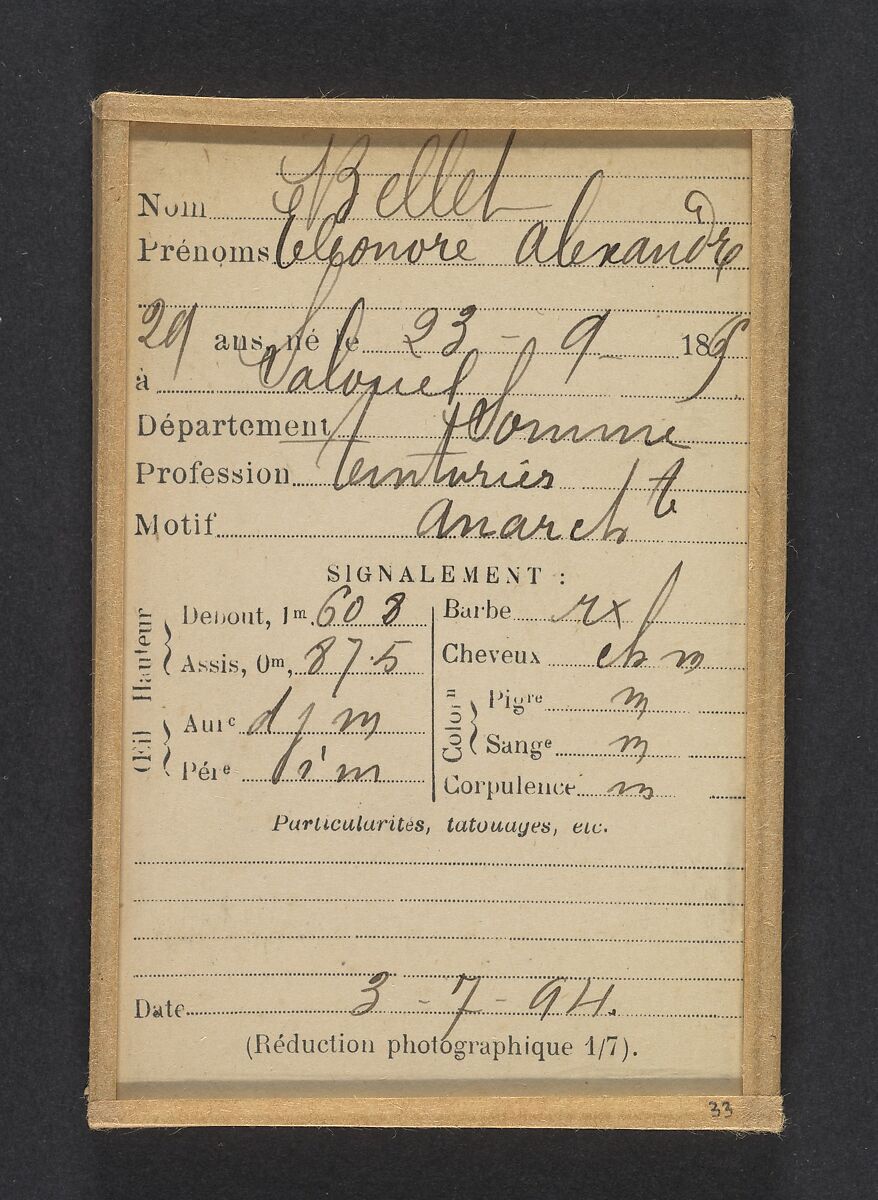 Nom Bellet
Prénoms Eléonore Alexandre
29 ans, né le 23 - 9 - 1865
à Salouel
Département Somme
Profession teinturier
Motif Anarchte
SIGNALEMENT :
Hauteur
Debout, 1m, 60 8
Assis, 0m, 87.5
Œil
Aurc d j m
Pére i m
Barbe rx
Cheveux ch m
Colorn
Pigre m
Sange m
Corpulence m
Particularités, tatouages, etc.
Date 3 - 7 - 94.
(Réduction photographique 1/7).
33